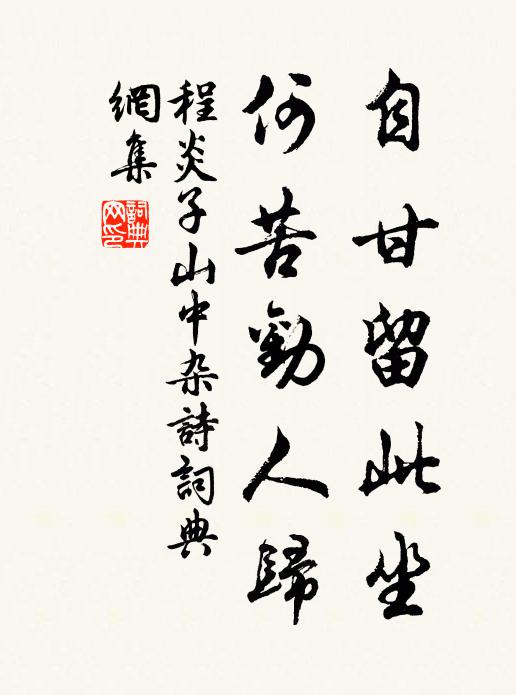 自甘留此坐
何苦勸人歸
程炎子山中杂詩詞典
網集
詞典網印